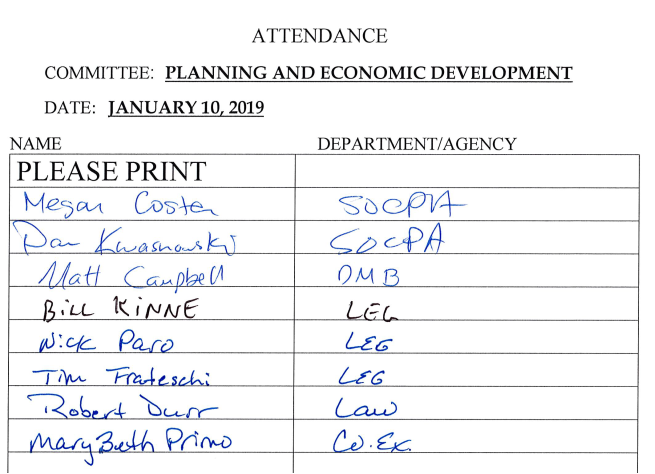 ATTENDANCE
COMMITTEE: PLANNING AND ECONOMIC DEVELOPMENT
DATE: JANUARY 10, 2019
NAME DEPARTMENT/AGENCY
PLEASE PRINT
Megan Costa SOCPA
Dan Kwasnowski SOCPA
Matt Campbell DMB
BILL KINNE LEG
Nick Paro LEG
Tim Frateschi LEG
Robert Durr Law
Mary Beth Primo Co. Ex.